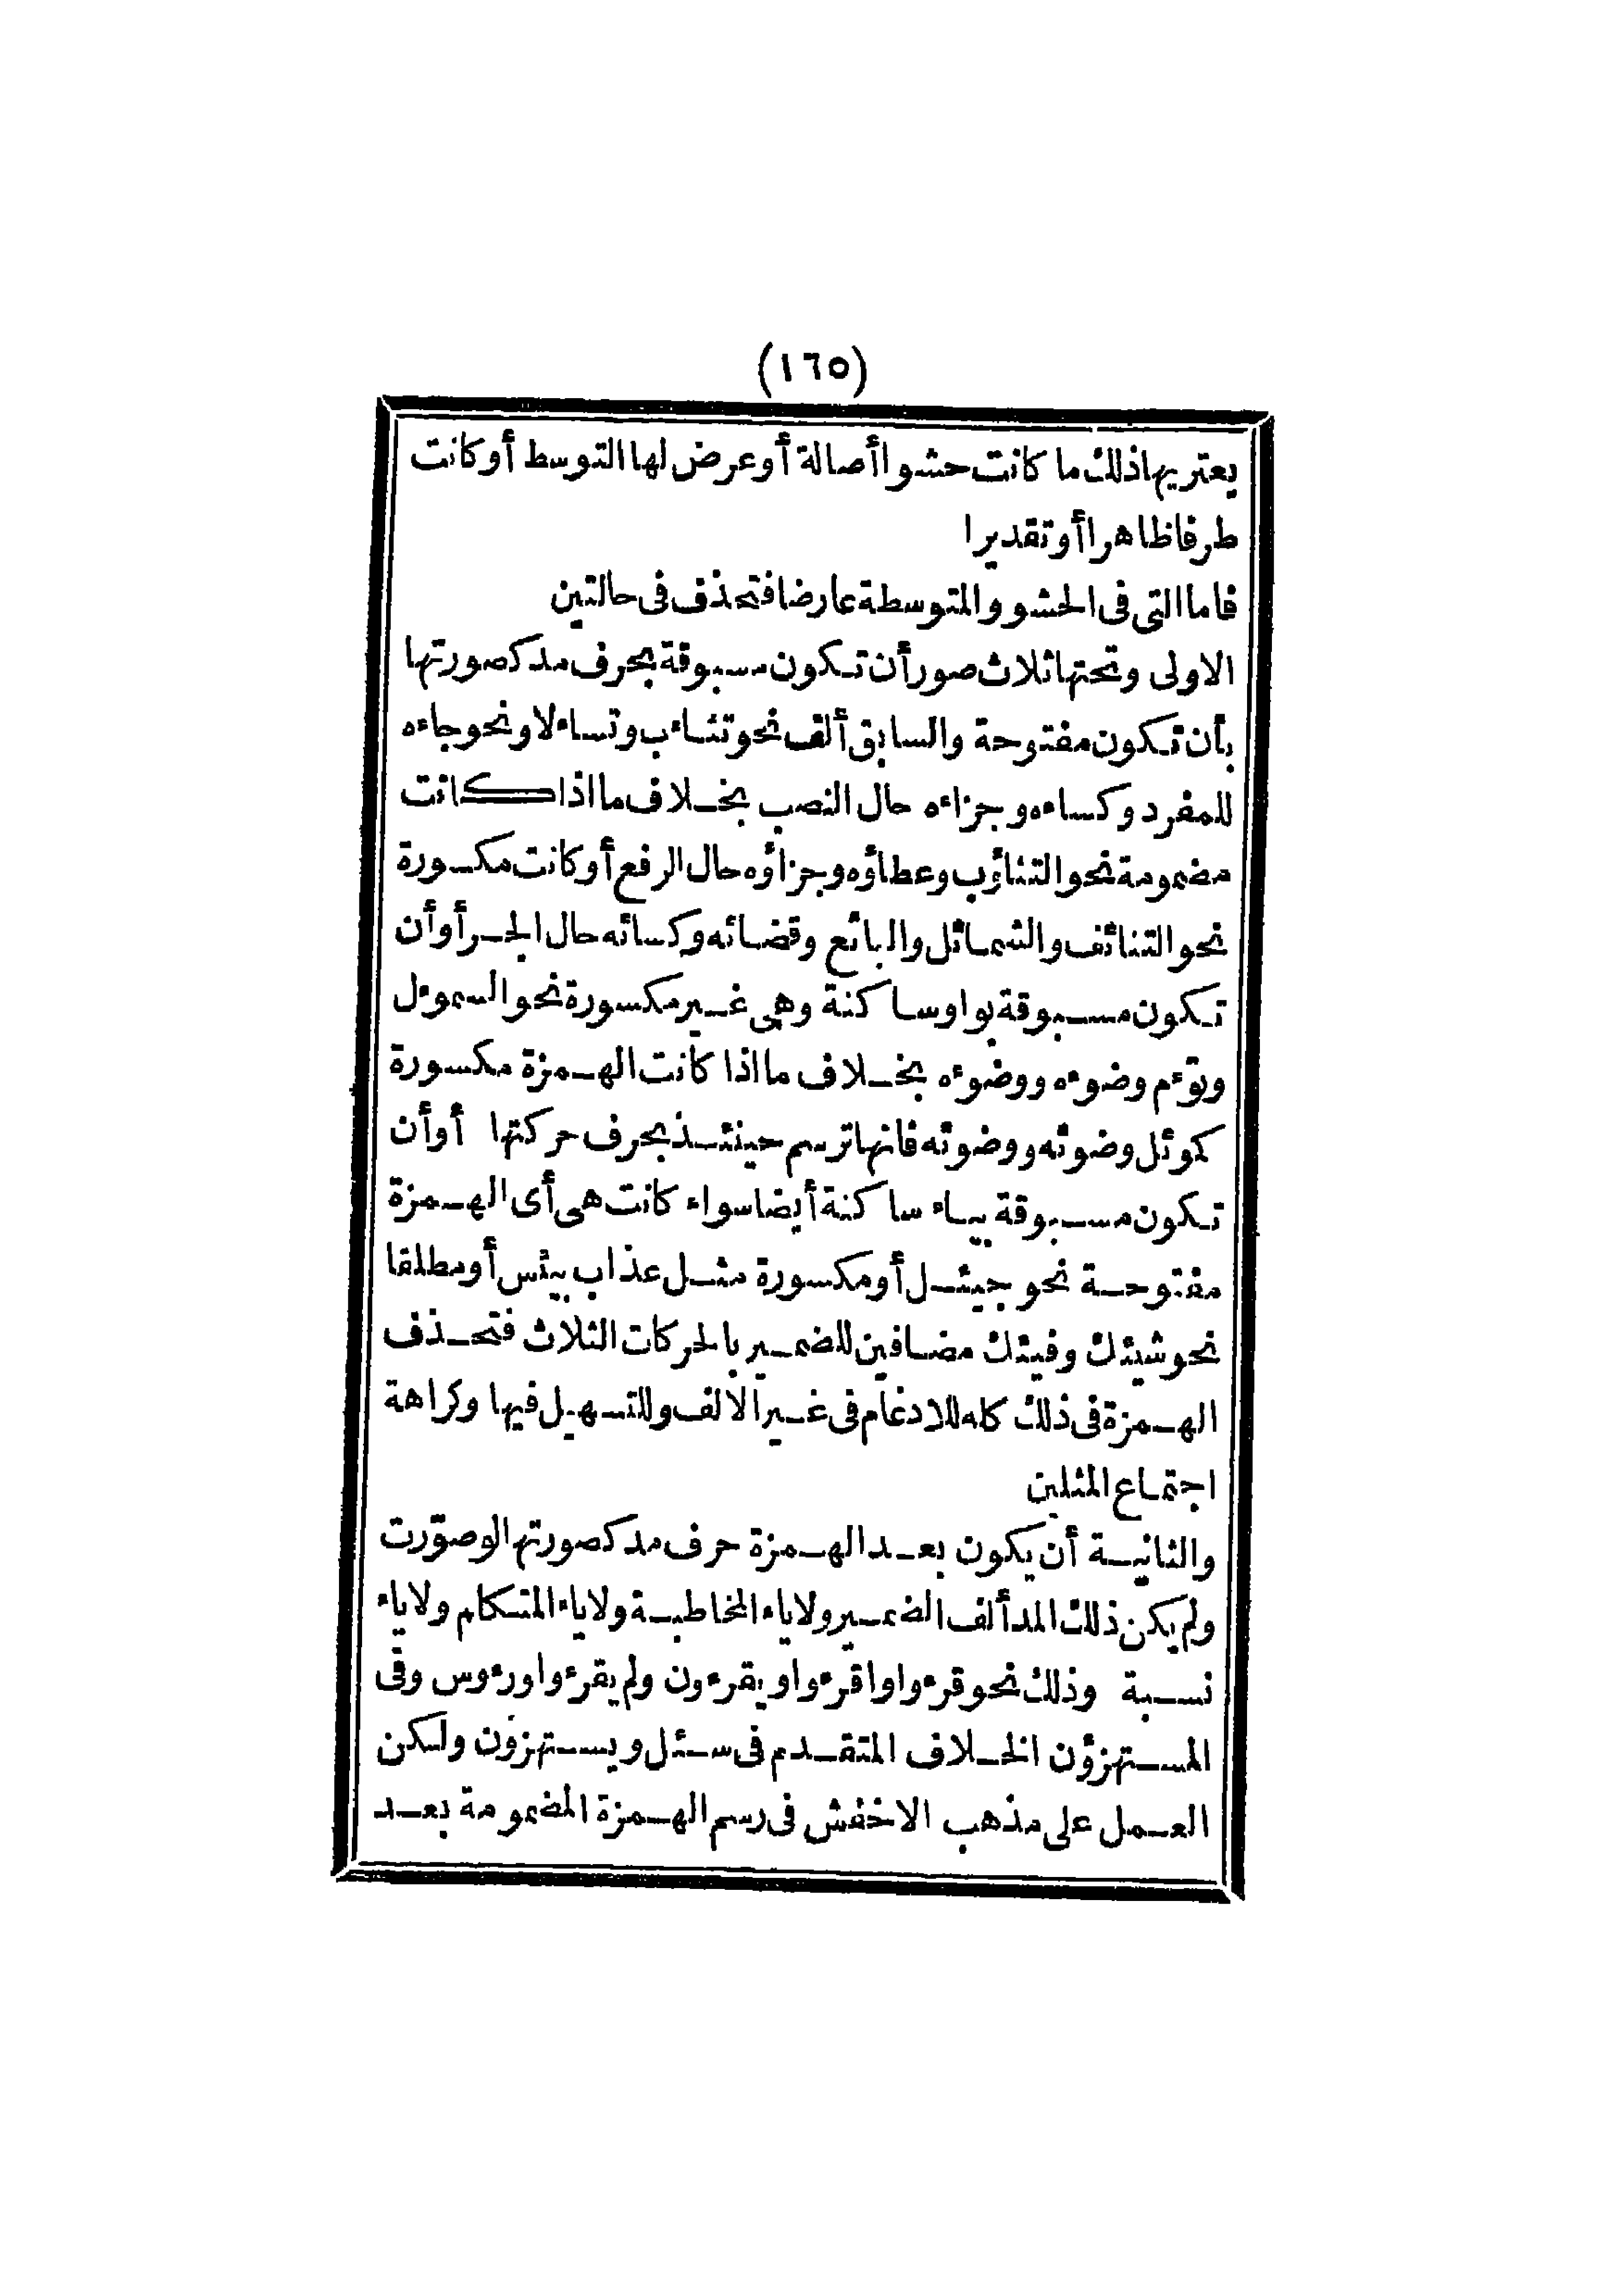 (١٦٥)
يعتريها ذلك ما كانت حشوا أصالة أو عرض لها التوسط أو كانت
طرفا ظاهرا أو تقديرا
فاما التى فى الحشو والمتوسطة عارضا فتحذف فى حالتين
الاولى وتحتها ثلاث صور أن تكون مسبوقة بحرف مد كصورتها
بأن تكون مفتوحة والسابق ألف نحو تثاءب وتساءلا ونحو جاءه
للمفرد وكساءه وجزاءه حال النصب بخلاف ما اذا كانت
مضمومة نحو التثاؤب وعطاؤه وجزاؤه حال الرفع أو كانت مكسورة
نحو التنائف والشمائل والبائع وقضائه وكسائه حال الجر أو أن
تكون مسبوقة بواو ساكنة وهى غير مكسورة نحو السموءل
وتوءم وضوءه ووضوءه بخلاف ما اذا كانت الهمزة مكسورة
كموئل وضوئه ووضوئه فانها ترسم حينئذ بحرف حركتها أو أن
تكون مسبوقة بياء ساكنة أيضا سواء كانت هى أى الهمزة
مفتوحة نحو جيئل أو مكسورة مثل عذاب بيئس أو مطلقا
نحو شيئك وفيئك مضافين للضمير بالحركات الثلاث فتحذف
الهمزة فى ذلك كله للادغام فى غير الالف وللتسهيل فيها وكراهة
اجتماع المثلين
والثانية أن يكون بعد الهمزة حرف مد كصورتها لو صوّرت
ولم يكن ذلك المد ألف الضمير ولا ياء المخاطبة ولا ياء المتكلم ولا ياء
نسبة وذلك نحو قرءوا واقرءوا ويقرءون ولم يقرءوا ورءوس وفى
المستهزؤن الخلاف المتقدم فى سئل ويستهزؤن ولكن
العمل على مذهب الاخفش فى رسم الهمزة المضمومة بعد